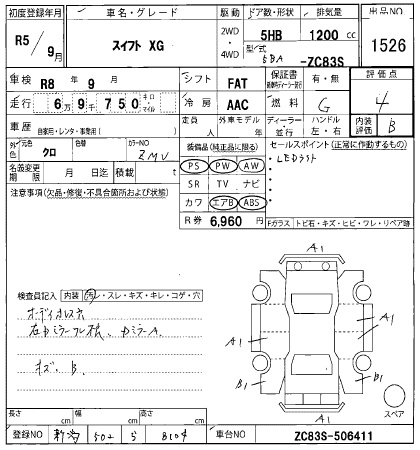 初度登録年月 車名・グレード 駆動 ドア数・形状 排気量 出品NO
R5 / 9月 スイフト XG 2WD ・ 4WD 5HB 1200 cc 1526
型式 5BA -ZC83S
車検 R8 年 9 月 シフト FAT 保証書 有・無 評価点
走行 6万9千750 キロ・マイル 冷房 AAC 燃料 G 4
車歴 自家用・レンタ・事業用( ) 定員 人 外車モデル 年 ディーラー・並行 ハンドル 左・右 内装評価 B
外色 クロ 元色 カラーNO. ZMV 装備品(純正品に限る) セールスポイント(正常に作動するもの)
名義変更期限 月 日迄 積載 t PS PW AW ・LEDライト
注意事項(欠品・修復・不具合箇所および状態) SR TV ナビ
カワ エアB ABS
R券 6,960 円 Fガラス トビ石・キズ・ヒビ・ワレ・リペア跡
A1
検査員記入 内装 汚レ・スレ・キズ・キレ・コゲ・穴
オーディオレス
A1 A1
キズ、B.
B1 B1
スペア
A1
長さ cm 幅 cm 高さ cm
登録NO 新潟 502 ら 8104 車台NO ZC83S-506411